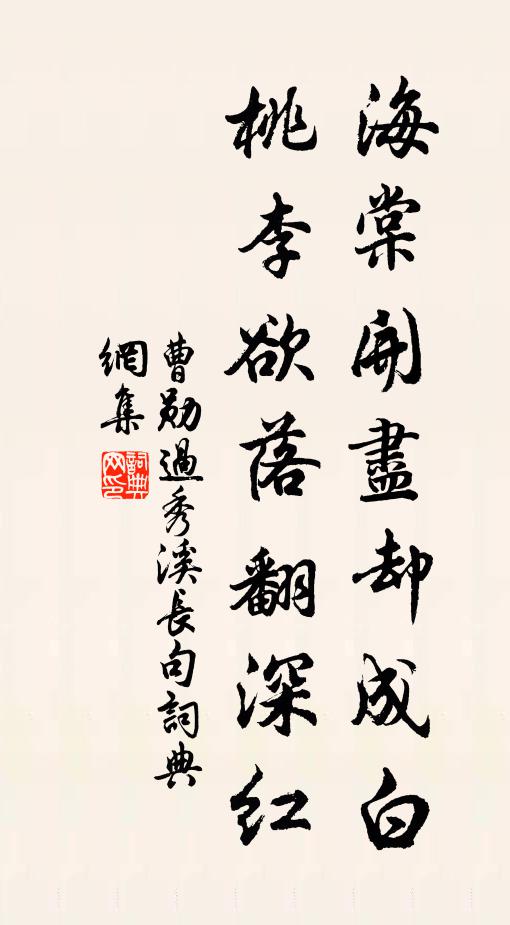 海棠開盡却成白
桃李欲落翻深紅
曹勛過秀溪長句詞典
網集
詞典
网印